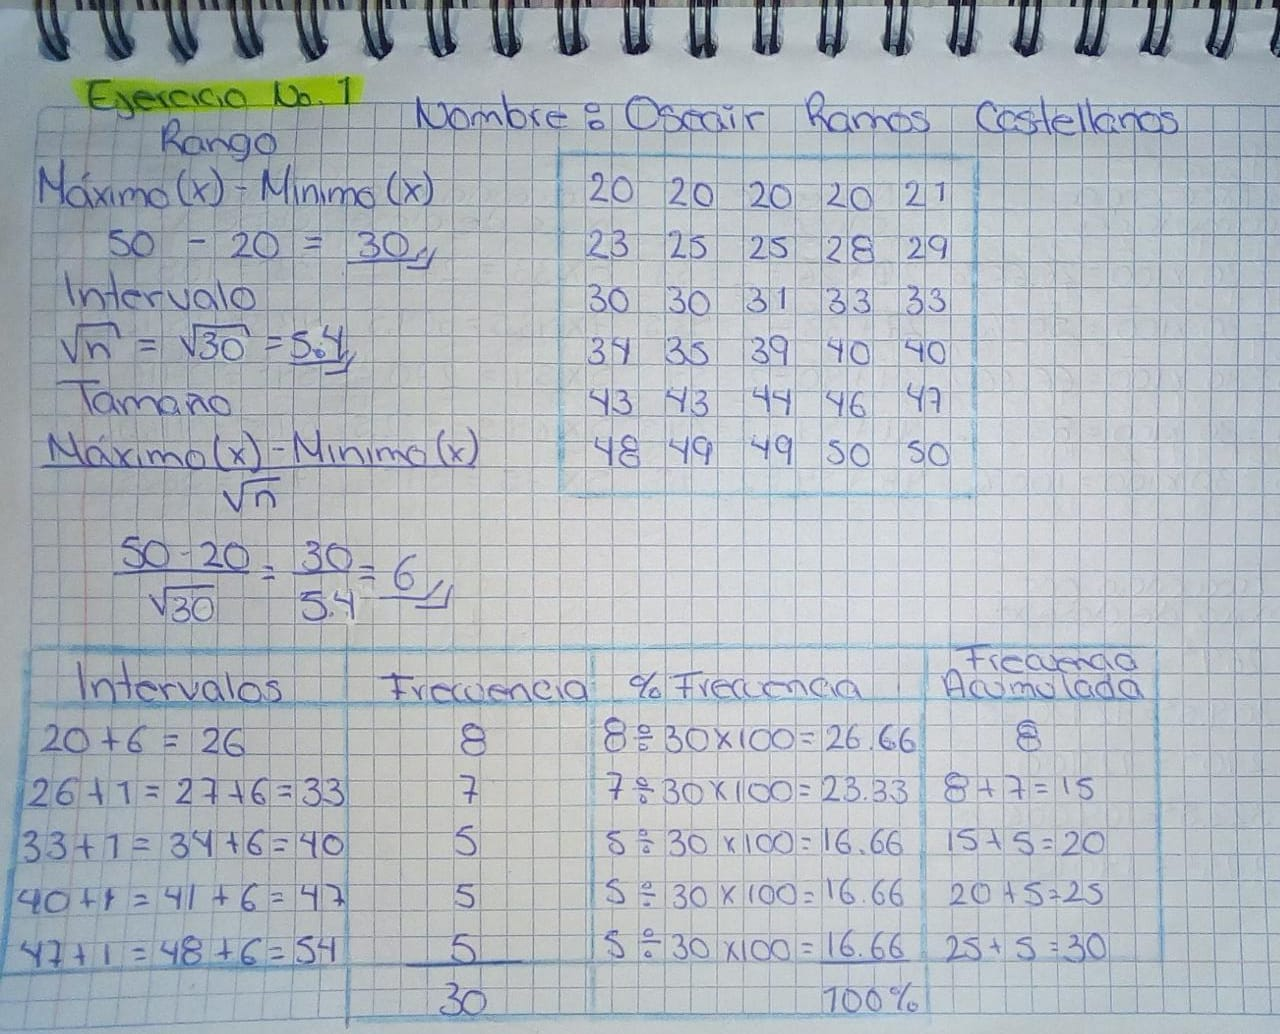 Ejercicio No. 1
Nombre: Oscair Ramos Castellanos
Rango
Máximo(x) - Mínimo(x)
50 - 20 = 30
Intervalo
√n = √30 = 5.4
Tamaño
Máximo(x) - Minimo(x)
√n
50 - 20 = 30 = 6
√30 5.4
20 20 20 20 21
23 25 25 28 29
30 30 31 33 33
34 35 39 40 40
43 43 44 46 47
48 49 49 50 50
Intervalos Frecuencia % Frecuencia Frecuencia Acumulada
20 + 6 = 26 8 8 ÷ 30 x 100 = 26.66 8
26 + 1 = 27 + 6 = 33 7 7 ÷ 30 x 100 = 23.33 8 + 7 = 15
33 + 1 = 34 + 6 = 40 5 5 ÷ 30 x 100 = 16.66 15 + 5 = 20
40 + 1 = 41 + 6 = 47 5 5 ÷ 30 x 100 = 16.66 20 + 5 = 25
47 + 1 = 48 + 6 = 54 5 5 ÷ 30 x 100 = 16.66 25 + 5 = 30
30 100%